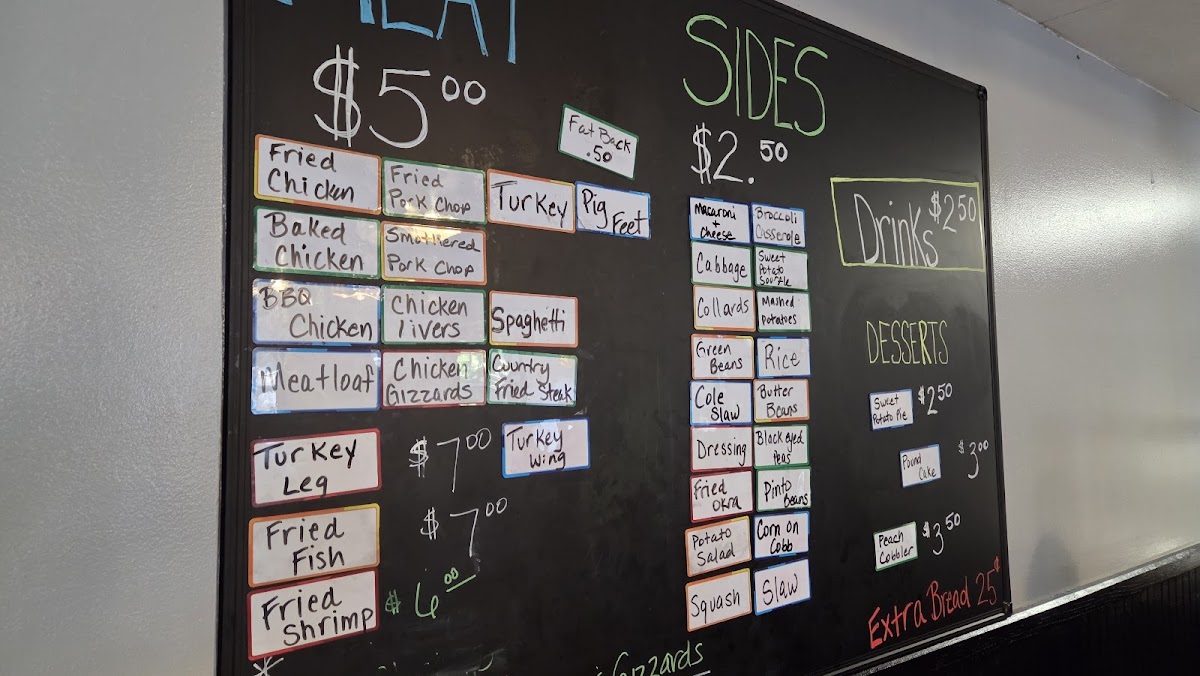 MEAT
$5.00
Fat Back
.50
Fried
Chicken
Fried
Pork Chop
Turkey
Pig
Feet
Baked
Chicken
Smothered
Pork Chop
BBQ
Chicken
Chicken
livers
Spaghetti
Meatloaf
Chicken
Gizzards
Country
Fried Steak
Turkey
Leg
$7.00
Turkey
Wing
Fried
Fish
$7.00
Fried
Shrimp
$6.00
Gizzards
SIDES
$2.50
Macaroni
+
Cheese
Broccoli
Casserole
Cabbage
Sweet
Potato
Souffle
Collards
Mashed
Potatoes
Green
Beans
Rice
Cole
Slaw
Butter
Beans
Dressing
Black eyed
Peas
Fried
Okra
Pinto
Beans
Potato
Salad
Corn on
Cobb
Squash
Slaw
Drinks $2.50
DESSERTS
Sweet
Potato Pie
$2.50
Pound
Cake
$3.00
Peach
Cobbler
$3.50
Extra Bread 25¢